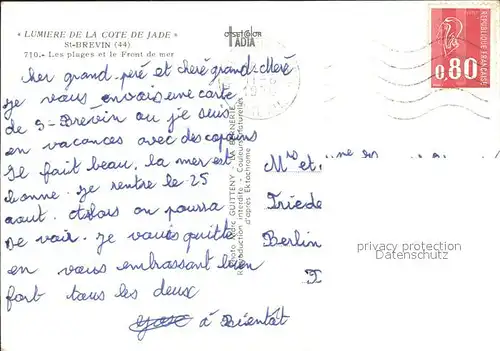 « LUMIERE DE LA COTE DE JADE »
St-BREVIN (44)
710.- Les plages et le Front de mer
OFFSETCOLOR
IADIA
cher grand-péré et chéré grand-Méré
je vous envoie une carte
de S-Brévin ou je suis
en vacances avec des copains
Il fait beau, la mer est
bonne. je rentre le 25
aout. Alors on pourra
se voir. je vous quitte
en vous embrassant bien
fort tous les deux
à Bientôt
Photo Cédic GUITTENY - LA BERNERIE
Reproduction interdite - Couleurs naturelles
d'après Ektachrome
REPUBLIQUE FRANCAISE
0,80
Mrs et
Friede
Berlin
privacy protection
Datenschutz